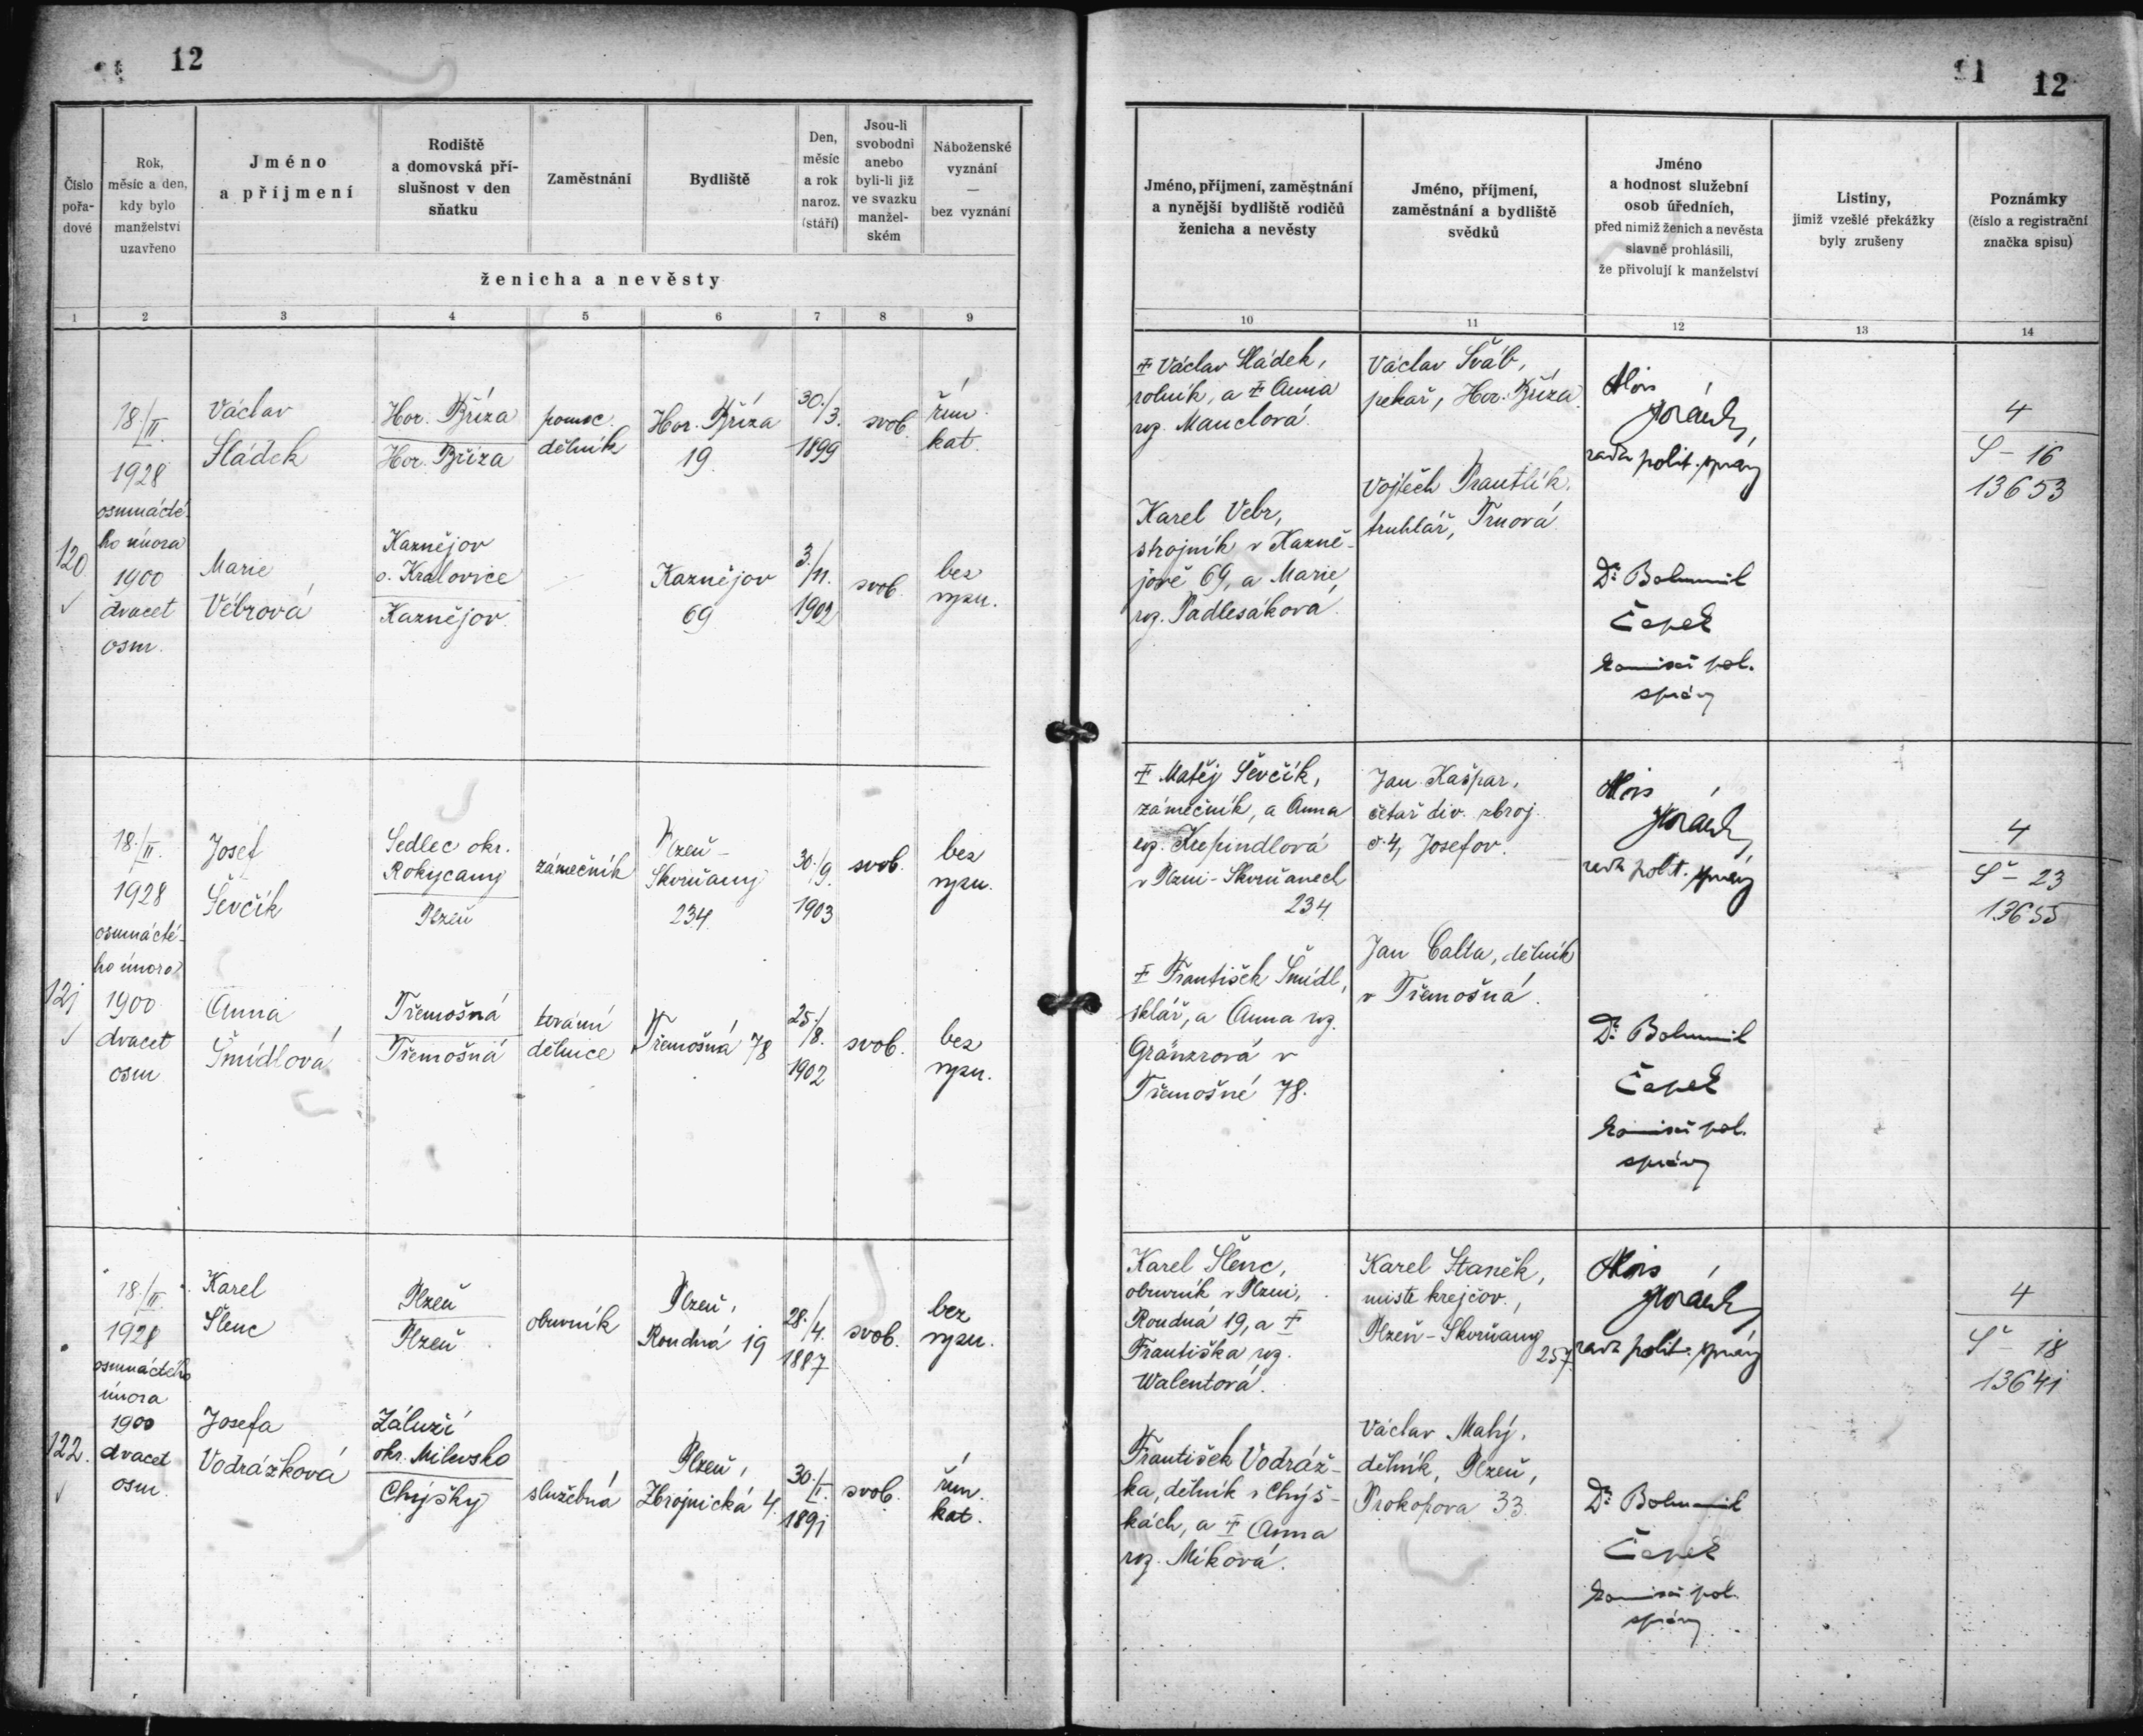 12
Číslo pořadové
Rok, měsíc a den, kdy bylo manželství uzavřeno
Jméno a příjmení
Rodiště a domovská příslušnost v den sňatku
Zaměstnání
Bydliště
Den, měsíc a rok naroz. (stáří)
Jsou-li svobodni anebo byli-li již ve svazku manželském
Náboženské vyznání — bez vyznání
ženicha a nevěsty
1 2 3 4 5 6 7 8 9
18./II.
1928
osmnácté-
ho února
1900
dvacet
osm.
120.
Václav
Sládek
Hor. Bříza
Hor. Bříza
pomoc.
dělník
Hor. Bříza
19
30./3.
1899
svob.
řím.
kat.
Marie
Vébrová
Kaznějov
o. Kralovice
Kaznějov
Kaznějov
69
3./11.
1902
svob.
bez
vyzn.
18./II.
1928
osmnácté-
ho února
1900
dvacet
osm
121
Josef
Ševčík
Sedlec okr.
Rokycany
Plzeň
zámečník
Plzeň-
Skvrňany
234
30./9.
1903
svob.
bez
vyzn.
Anna
Šmídlová
Třemošná
Třemošná
tovární
dělnice
Třemošná 78
25./8.
1902
svob.
bez
vyzn.
18./II.
1928
osmnáctého
února
1900
dvacet
osm.
122.
Karel
Šlenc
Plzeň
Plzeň
obuvník
Plzeň,
Roudná 19
28./4.
1887
svob.
bez
vyzn.
Josefa
Vodrážková
Záluží
okr. Milevsko
Chýšky
služebná
Plzeň,
Zbrojnická 4
30./I.
1891
svob.
řím.
kat.
12
Jméno, příjmení, zaměstnání a nynější bydliště rodičů ženicha a nevěsty
Jméno, příjmení, zaměstnání a bydliště svědků
Jméno a hodnost služební osob úředních, před nimiž ženich a nevěsta slavně prohlásili, že přivolují k manželství
Listiny, jimiž vzešlé překážky byly zrušeny
Poznámky (číslo a registrační značka spisu)
10 11 12 13 14
Václav Sládek,
rolník, a Anna
roz. Mauclová.
Karel Vebr,
strojník v Kazně-
jově 69, a Marie,
roz. Padlesáková.
Václav Šváb,
pekař, Hor. Bříza
Vojtěch Prautlík,
truhlář, Trnová
Alois
Horáček,
rada polit. správy
Dr. Bohumil
Čapek
komisař pol.
správy
4
S - 16
13653
Matěj Ševčík,
zámečník, a Anna
roz.
v Plzni-Skvrňanech
234.
František Šmídl,
sklář, a Anna roz.
Gränzrová v
Třemošné 78.
Jan Kašpar,
četař div. zbroj.
č. 4, Josefov.
Jan Calta, dělník
v Třemošná.
Alois
Horáček,
rada polit. správy
Dr. Bohumil
Čapek
komisař pol.
správy
4
Š - 23
13655
Karel Šlenc,
obuvník v Plzni,
Roudná 19, a
Františka roz.
Walentová.
František Vodráž-
ka, dělník v Chýš-
kách, a Anna
roz. Míková.
Karel Staněk,
mistr krejčov.,
Plzeň-Skvrňany
257
Václav Malý,
dělník, Plzeň,
Prokopova 33.
Alois
Horáček,
rada polit. správy
Dr. Bohumil
Čapek
komisař pol.
správy
4
Š - 18
13641